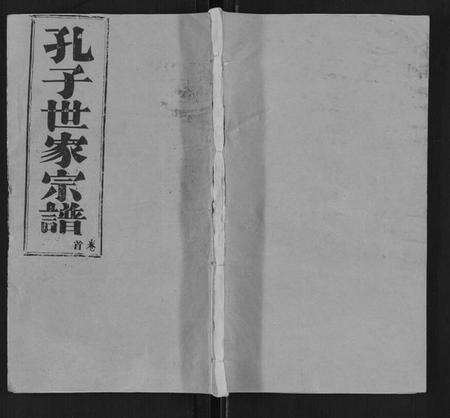 孔子世家宗譜
卷首